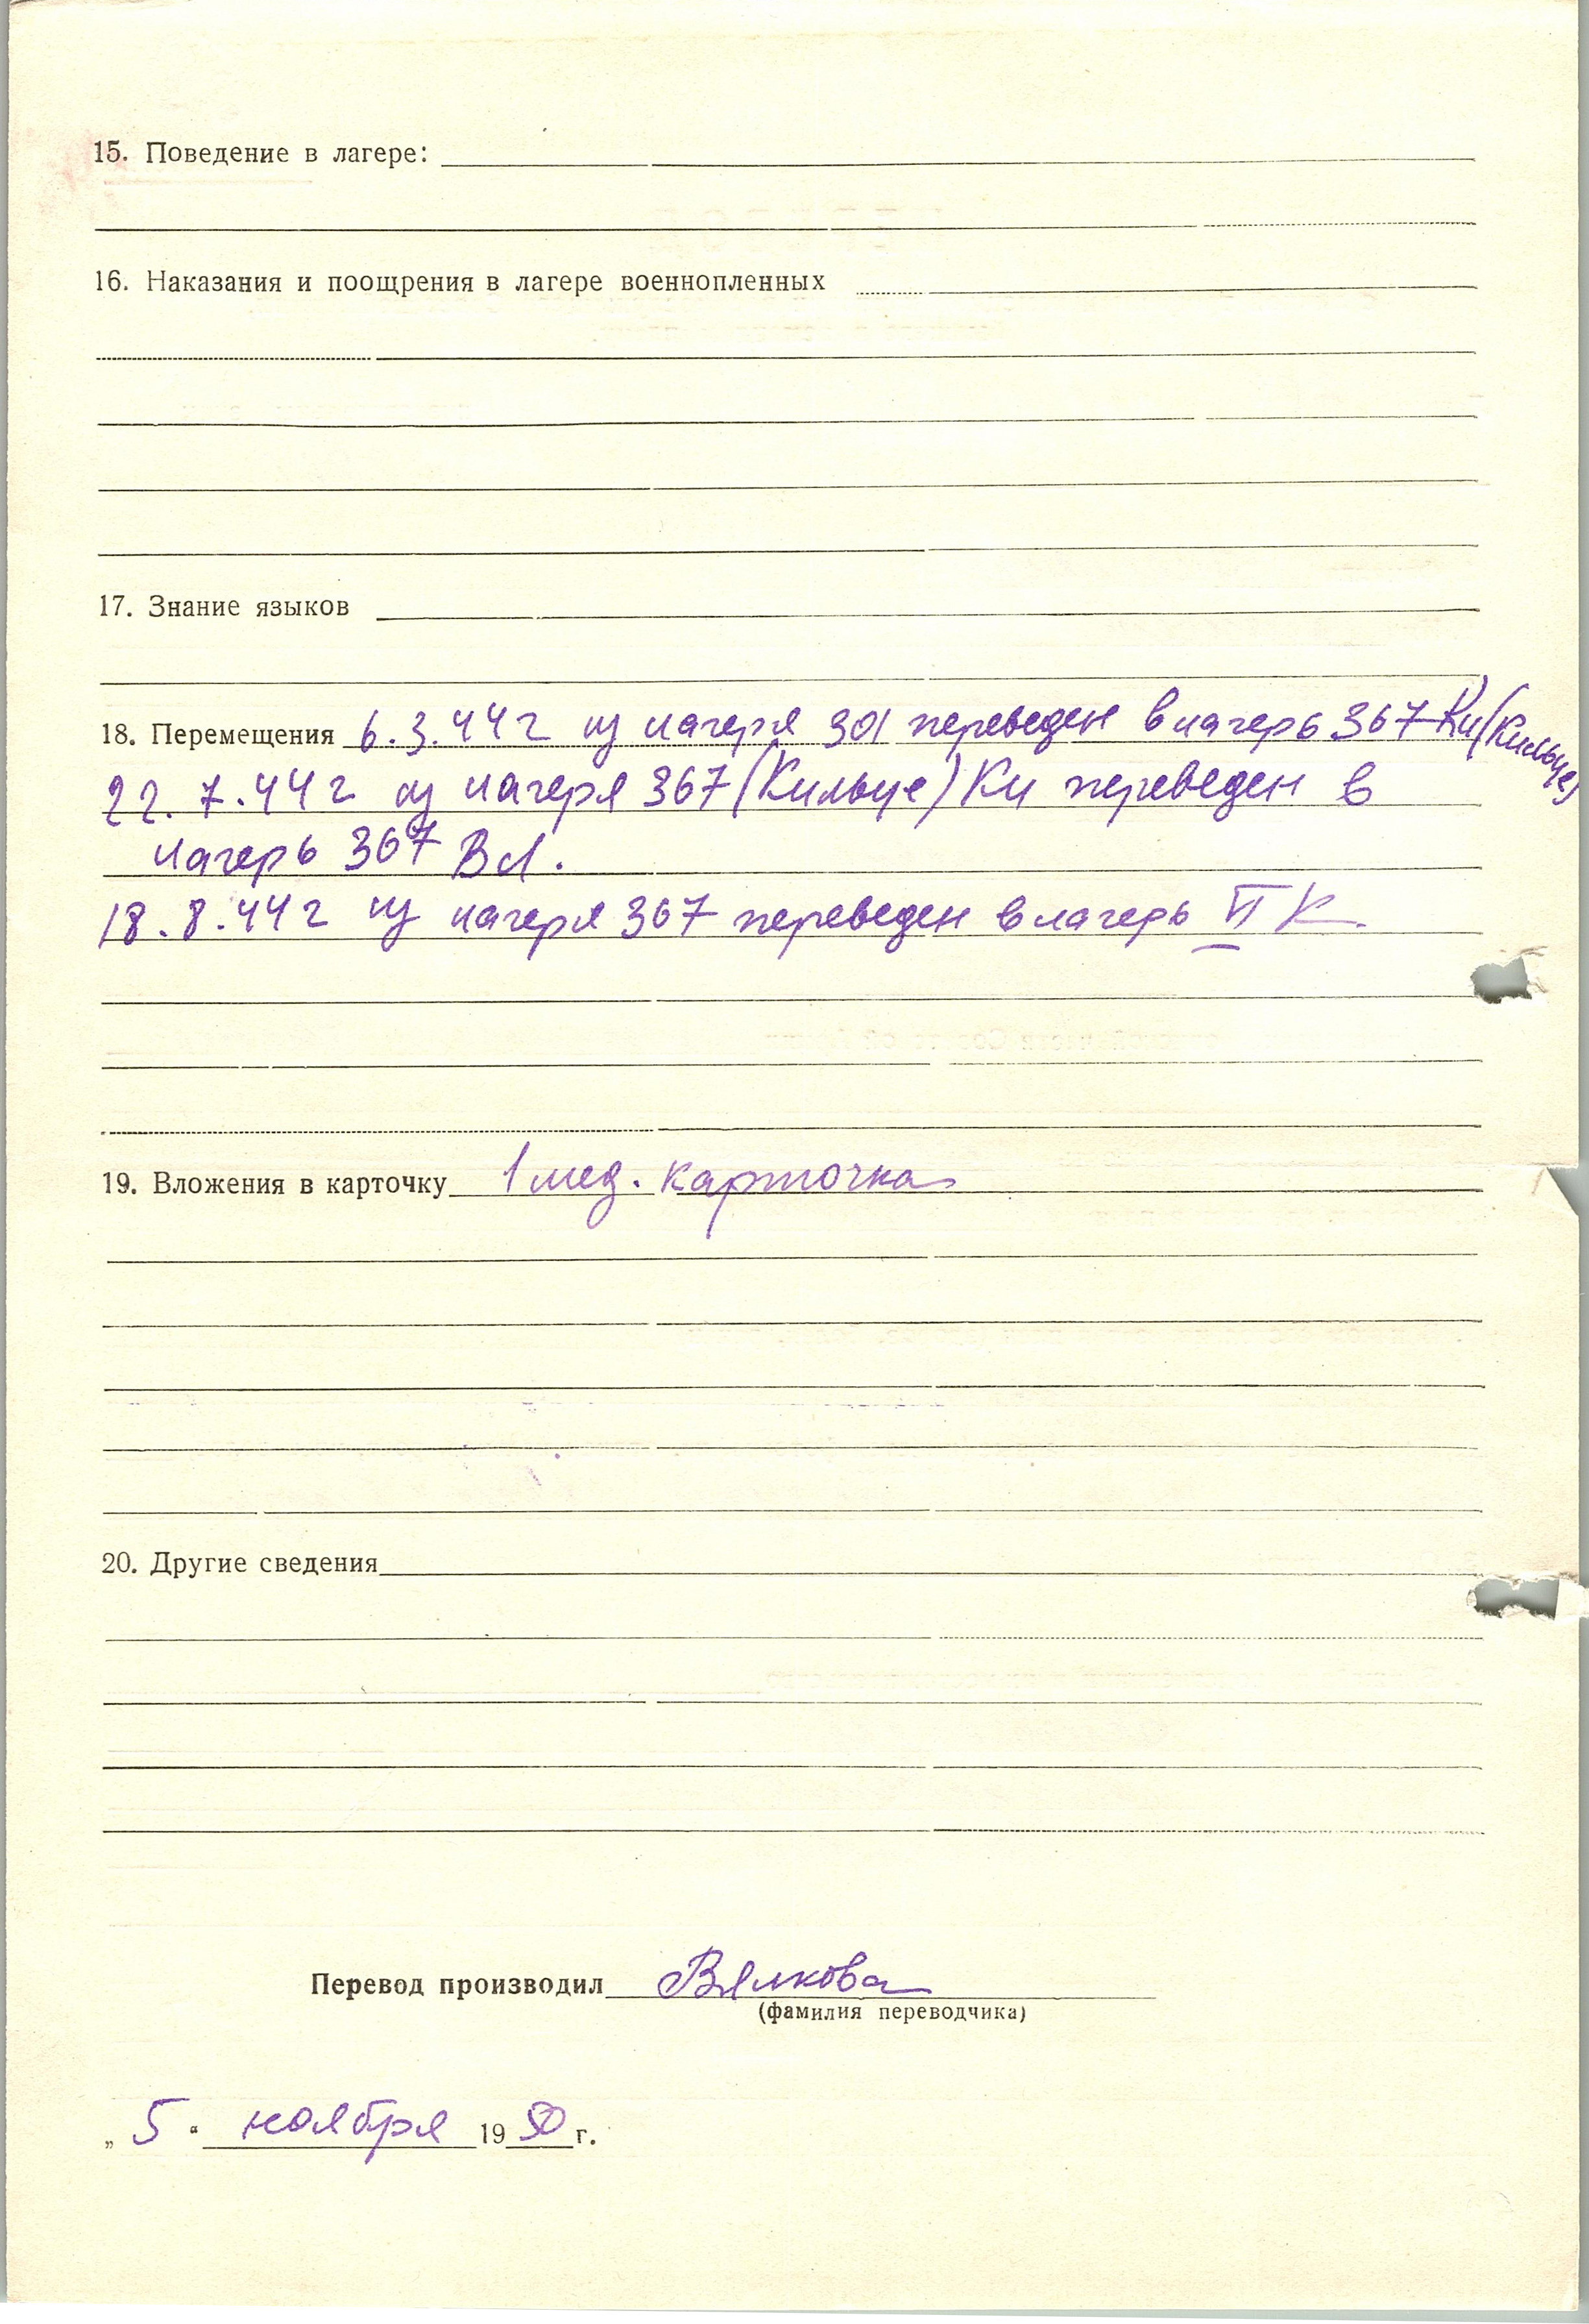 15. Поведение в лагере:
16. Наказания и поощрения в лагере военнопленных
17. Знание языков
18. Перемещения 6.3.44 г из лагеря 301 переведен в лагерь 367 Ки (Кильце)
22.7.44 г из лагеря 367 (Кильце) Ки переведен в
лагерь 367 Вл.
18.8.44 г из лагеря 367 переведен в лагерь VI К.
19. Вложения в карточку 1 мед. карточка
20. Другие сведения
Перевод производил Вялкова
(фамилия переводчика)
„ 5 “ ноября 1950 г.